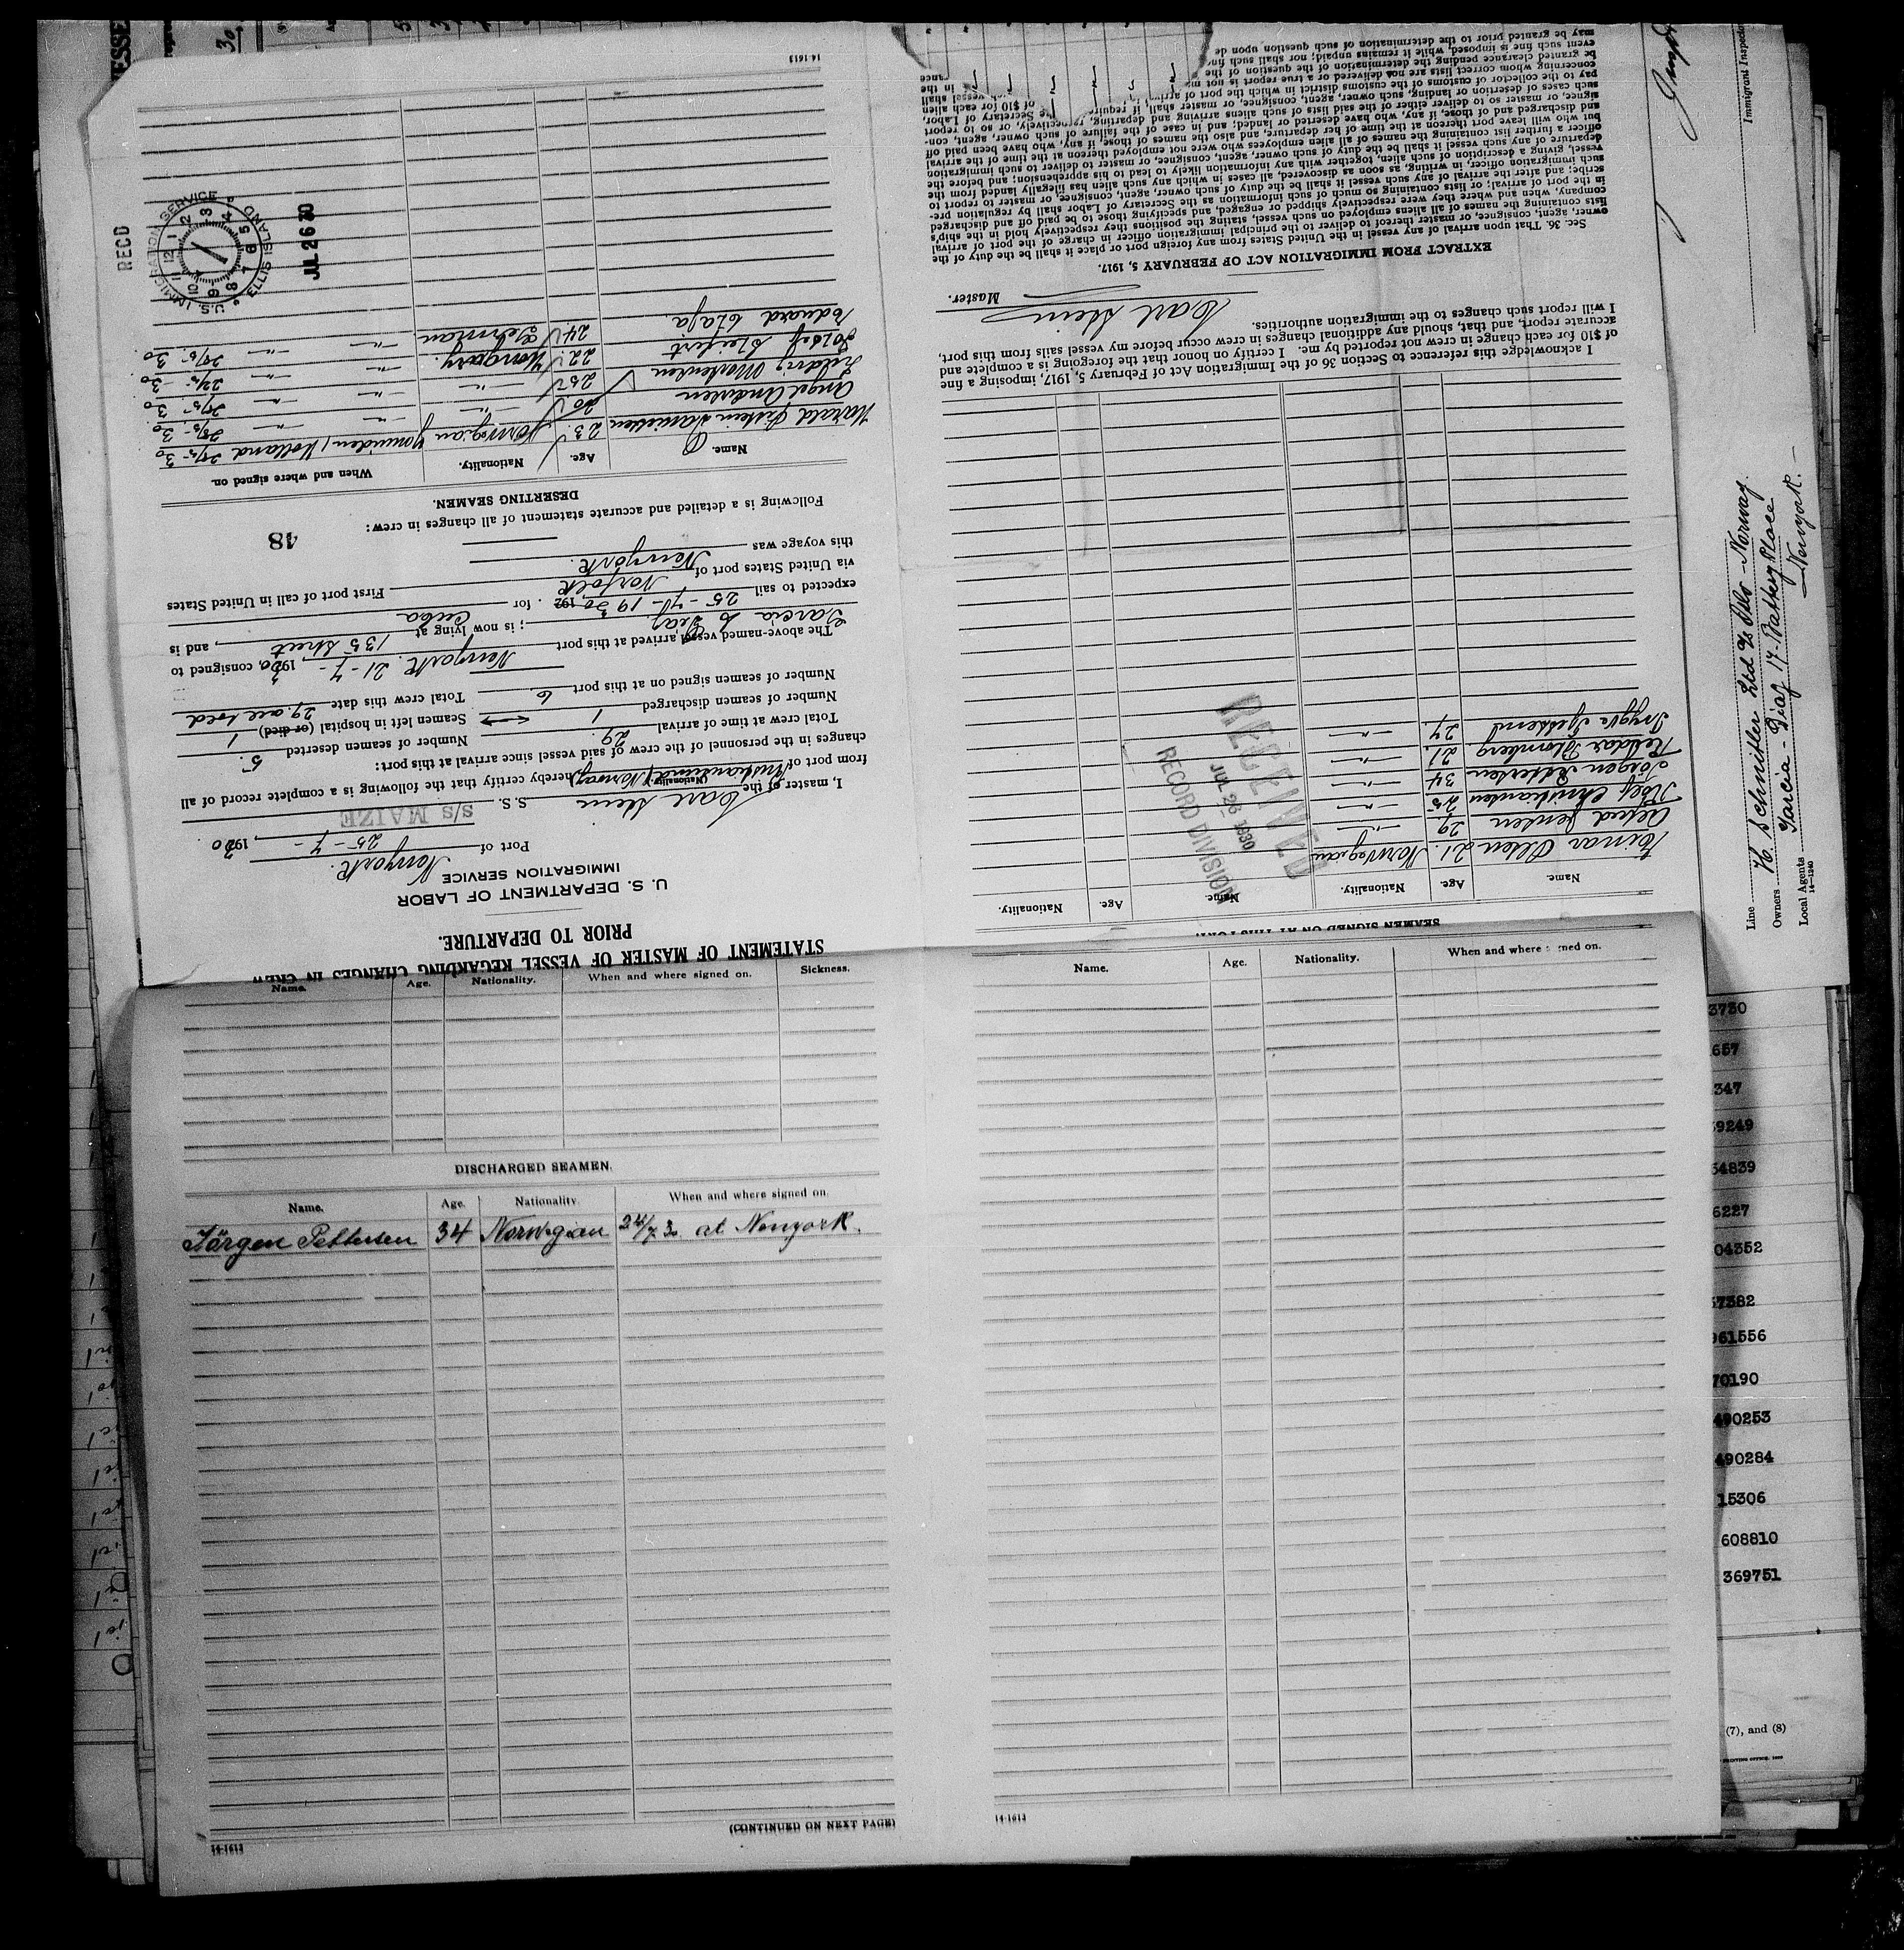 STATEMENT OF MASTER OF VESSEL REGARDING CHANGES IN CREW
PRIOR TO DEPARTURE.
U. S. DEPARTMENT OF LABOR
IMMIGRATION SERVICE
Port of Newyork.
25 - 7 - , 1930.
I, Carl Stein, master of the S. S. S/S MAIZE
(Nationality)
from port of Kristiansund (Norway) hereby certify that the following is a complete record of all
changes in the personnel of the crew of said vessel since arrival at this port:
Total crew at time of arrival 29. Number of seamen deserted 5.
Number of seamen discharged 1 Seamen left in hospital (or died) 1
Number of seamen signed on at this port 6 Total crew this date 29. all told
The above-named vessel arrived at this port Newyork. 21 - 7 - , 1930, consigned to
Garcia & Diaz ; is now lying at 135 street , and is
expected to sail 25 - 7 - 1930 192 . for Cuba
via United States port of Norfolk First port of call in United States
this voyage was Newyork.
Following is a detailed and accurate statement of all changes in crew:
48
DESERTING SEAMEN.
Name. Age. Nationality. When and where signed on.
Harald 23. Norwegian Ymuiden/Holland 30
Andersen 20 -"- -"- -"- 30
Ludvig Mortensen 25 -"- -"- -"- 30
Josef Seifert 22. Hungary. -"- -"- 30
Eduard 24 German -"- -"- 30
RECD
U.S. IMMIGRATION SERVICE
ELLIS ISLAND
JUL 26 30
14-1613
SEAMEN SIGNED ON AT THIS PORT.
Name. Age. Nationality. Name. Age. Nationality.
Einar Olsen 21. Norwegian
Alfred Jensen 29. -"-
Rolf Christiansen 25 -"-
Jörgen Pettersen 34 -"-
Reidar Blomberg 21. -"-
Trygve 27. -"-
RECEIVED
JUL 26 1930
RECORD DIVISION
I acknowledge this reference to Section 36 of the Immigration Act of February 5, 1917, imposing a fine
of $10 for each change in crew not reported by me. I certify on honor that the foregoing is a complete and
accurate report, and that, should any additional changes in crew occur before my vessel sails from this port,
I will report such changes to the immigration authorities.
Carl Stein Master.
EXTRACT FROM IMMIGRATION ACT OF FEBRUARY 5, 1917.
Sec. 36. That upon arrival of any vessel in the United States from any foreign port or place it shall be the duty of the
owner, agent, consignee, or master thereof to deliver to the principal immigration officer in charge of the port of arrival
lists containing the names of all aliens employed on such vessel, stating the positions they respectively hold in the ship's
company, when and where they were respectively shipped or engaged, and specifying those to be paid off and discharged
in the port of arrival; or lists containing so much of such information as the Secretary of Labor shall by regulation pre-
scribe; and after the arrival of any such vessel it shall be the duty of such owner, agent, consignee, or master to report to
such immigration officer, in writing, as soon as discovered, all cases in which any such alien has illegally landed from the
vessel, giving a description of such alien, together with any information likely to lead to his apprehension; and before the
departure of any such vessel it shall be the duty of such owner, agent, consignee, or master to deliver to such immigration
officer a further list containing the names of all alien employees who were not employed thereon at the time of the arrival
but who will leave port thereon at the time of her departure, and also the names of those, if any, who have been paid off
and discharged and of those, if any, who have deserted or landed; and in case of the failure of such owner, agent, con-
signee, or master so to deliver either of the said lists of such aliens arriving and departing, respectively, or so to report
such cases of desertion or landing, such owner, agent, consignee, or master shall, if required by the Secretary of Labor,
pay to the collector of customs of the customs district in which the port of arrival of $10 for each alien
concerning whom correct lists are not delivered or a true report is not vessel shall
be granted clearance pending the determination of the question of the in the
event such fine is imposed, while it remains unpaid; nor shall such fine
may be granted prior to the determination of such question upon de
Immigrant Inspector
Line
Owners H Schnitler Ltd A/S Oslo - Norway.
Local Agents Garcia - Diaz 17 - Battery Place
Newyork. -
14-1240
Name. Age. Nationality. When and where signed on. Sickness.
DISCHARGED SEAMEN.
Name. Age. Nationality. When and where signed on.
Jörgen Pettersen 34 Norwegian 24/7 30 at Newyork.
(CONTINUED ON NEXT PAGE)
14-1613
Name. Age. Nationality. When and where signed on.
14-1613
3730
657
347
39249
54839
6227
04352
57382
961556
70190
490253
490284
15306
608810
369751
(7), and (8)